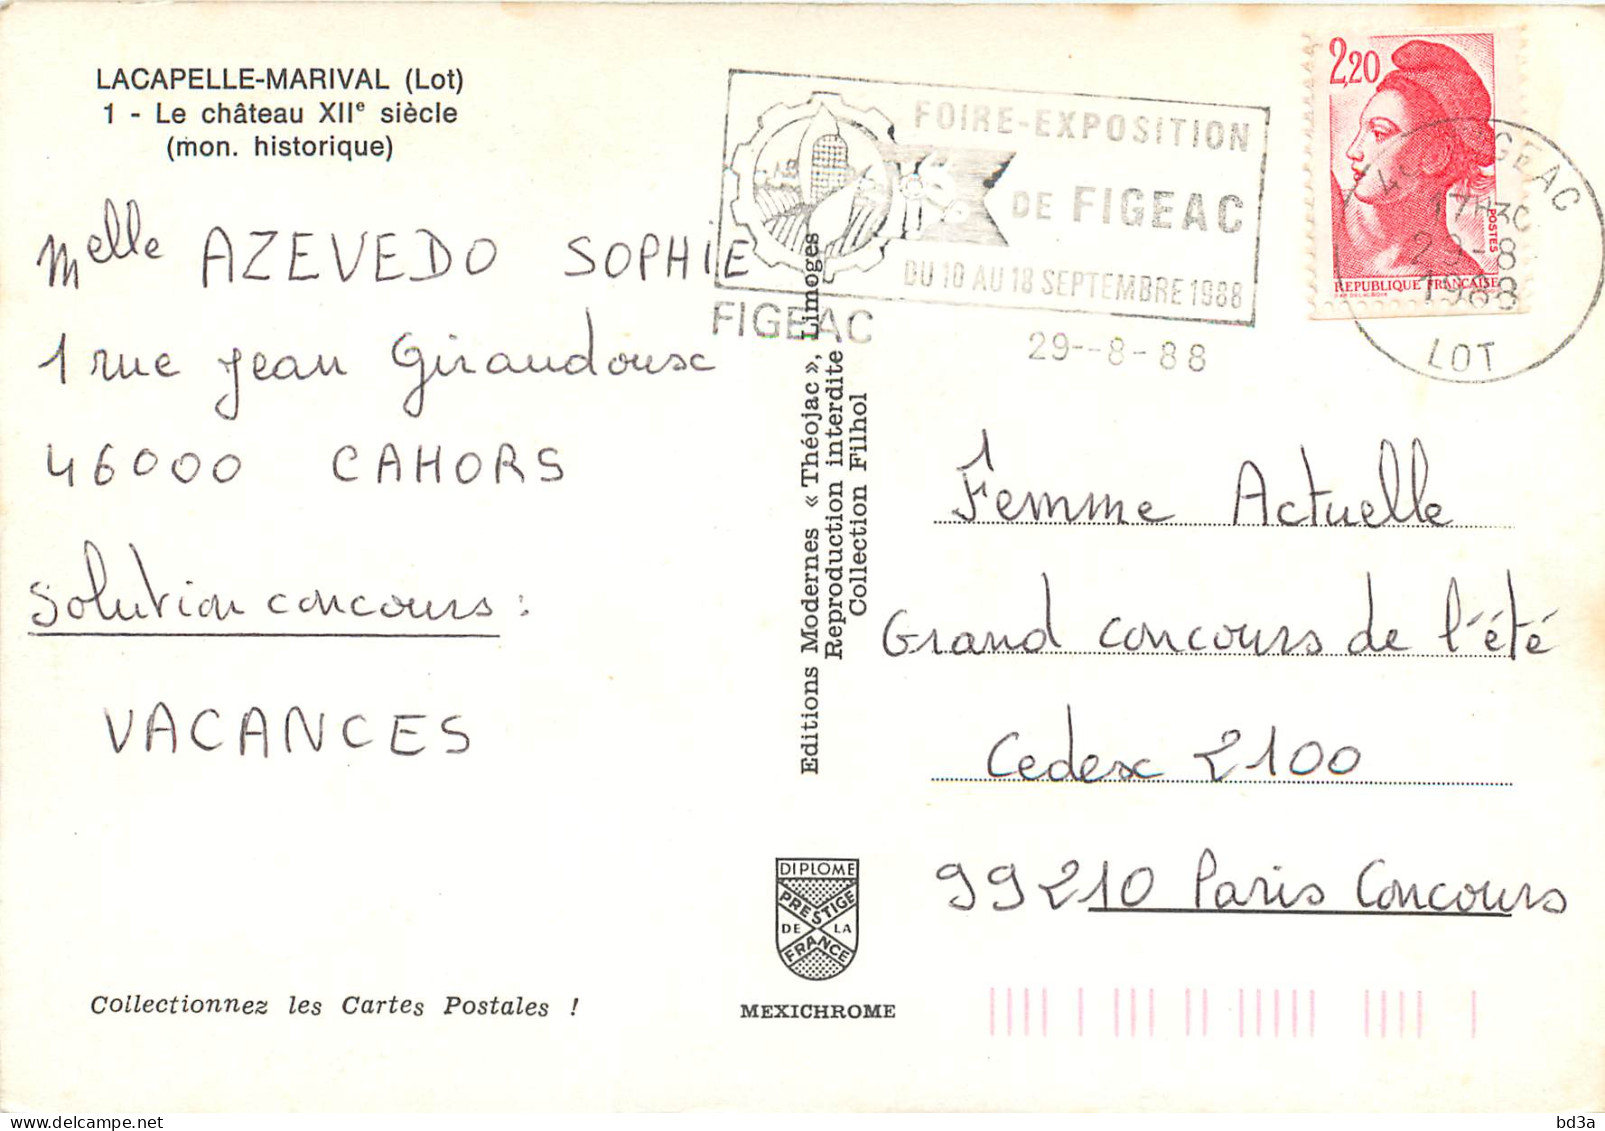 LACAPELLE-MARIVAL (Lot)
1 - Le château XIIe siècle
(mon. historique)
Melle AZEVEDO SOPHIE
1 rue Jean Giraudoux
46000 CAHORS
Solution concours :
VACANCES
Collectionnez les Cartes Postales !
FOIRE-EXPOSITION
DE FIGEAC
DU 10 AU 18 SEPTEMBRE 1988
FIGEAC
29--8-88
2,20
POSTES
REPUBLIQUE FRANÇAISE
17H30
29-8
1988
LOT
Editions Modernes « Théojac », Limoges
Reproduction interdite
Collection Filhol
Femme Actuelle
Grand concours de l'été
Cedex 2100
99210 Paris Concours
DIPLOME
PRESTIGE
DE LA
FRANCE
MEXICHROME
bd3a